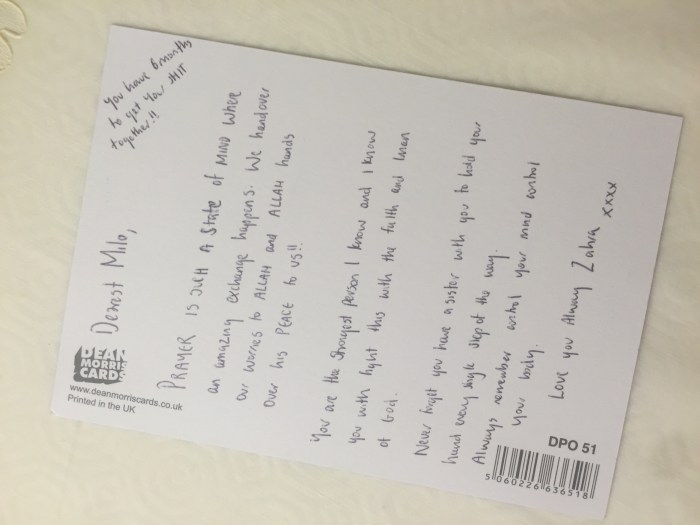 To You have 6 months
to get your SHIT
together!!
Dearest Milo,
PRAYER IS SUCH A State of MIND Where
an amazing exchange happens. We handover
our worries to ALLAH and ALLAH hands
over his PEACE to us!!
You are the strongest person I know and I know
you with fight this with the faith and Iman
of God.
Never forget you have a sister with you to hold your
hand every single step of the way.
Always remember control your mind control
your body.
Love you Always Zahra xxxx
DEAN
MORRIS
CARDS
www.deanmorriscards.co.uk
Printed in the UK
DPO 51
5 060226 636518